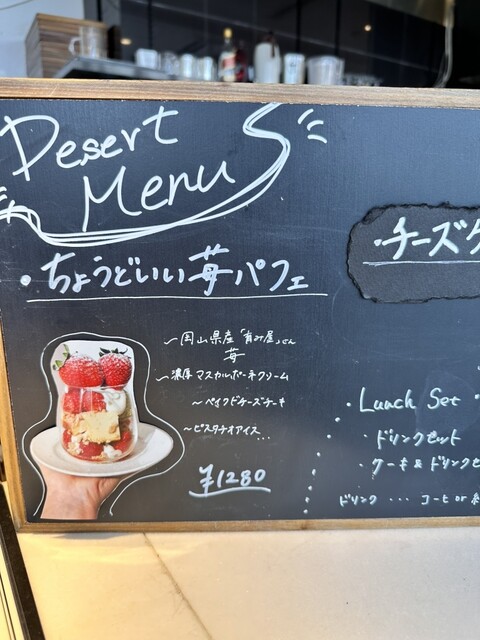 Desert
Menu
・ちょうどいい苺パフェ
~岡山県産「育み屋」さん
苺
~濃厚マスカルポーネクリーム
~ベイクドチーズケーキ
~ピスタチオアイス...
¥1280
・チーズケ
・Lunch Set
・ドリンクセット
・ケーキ&ドリンクセ
ドリンク ... コーヒ or